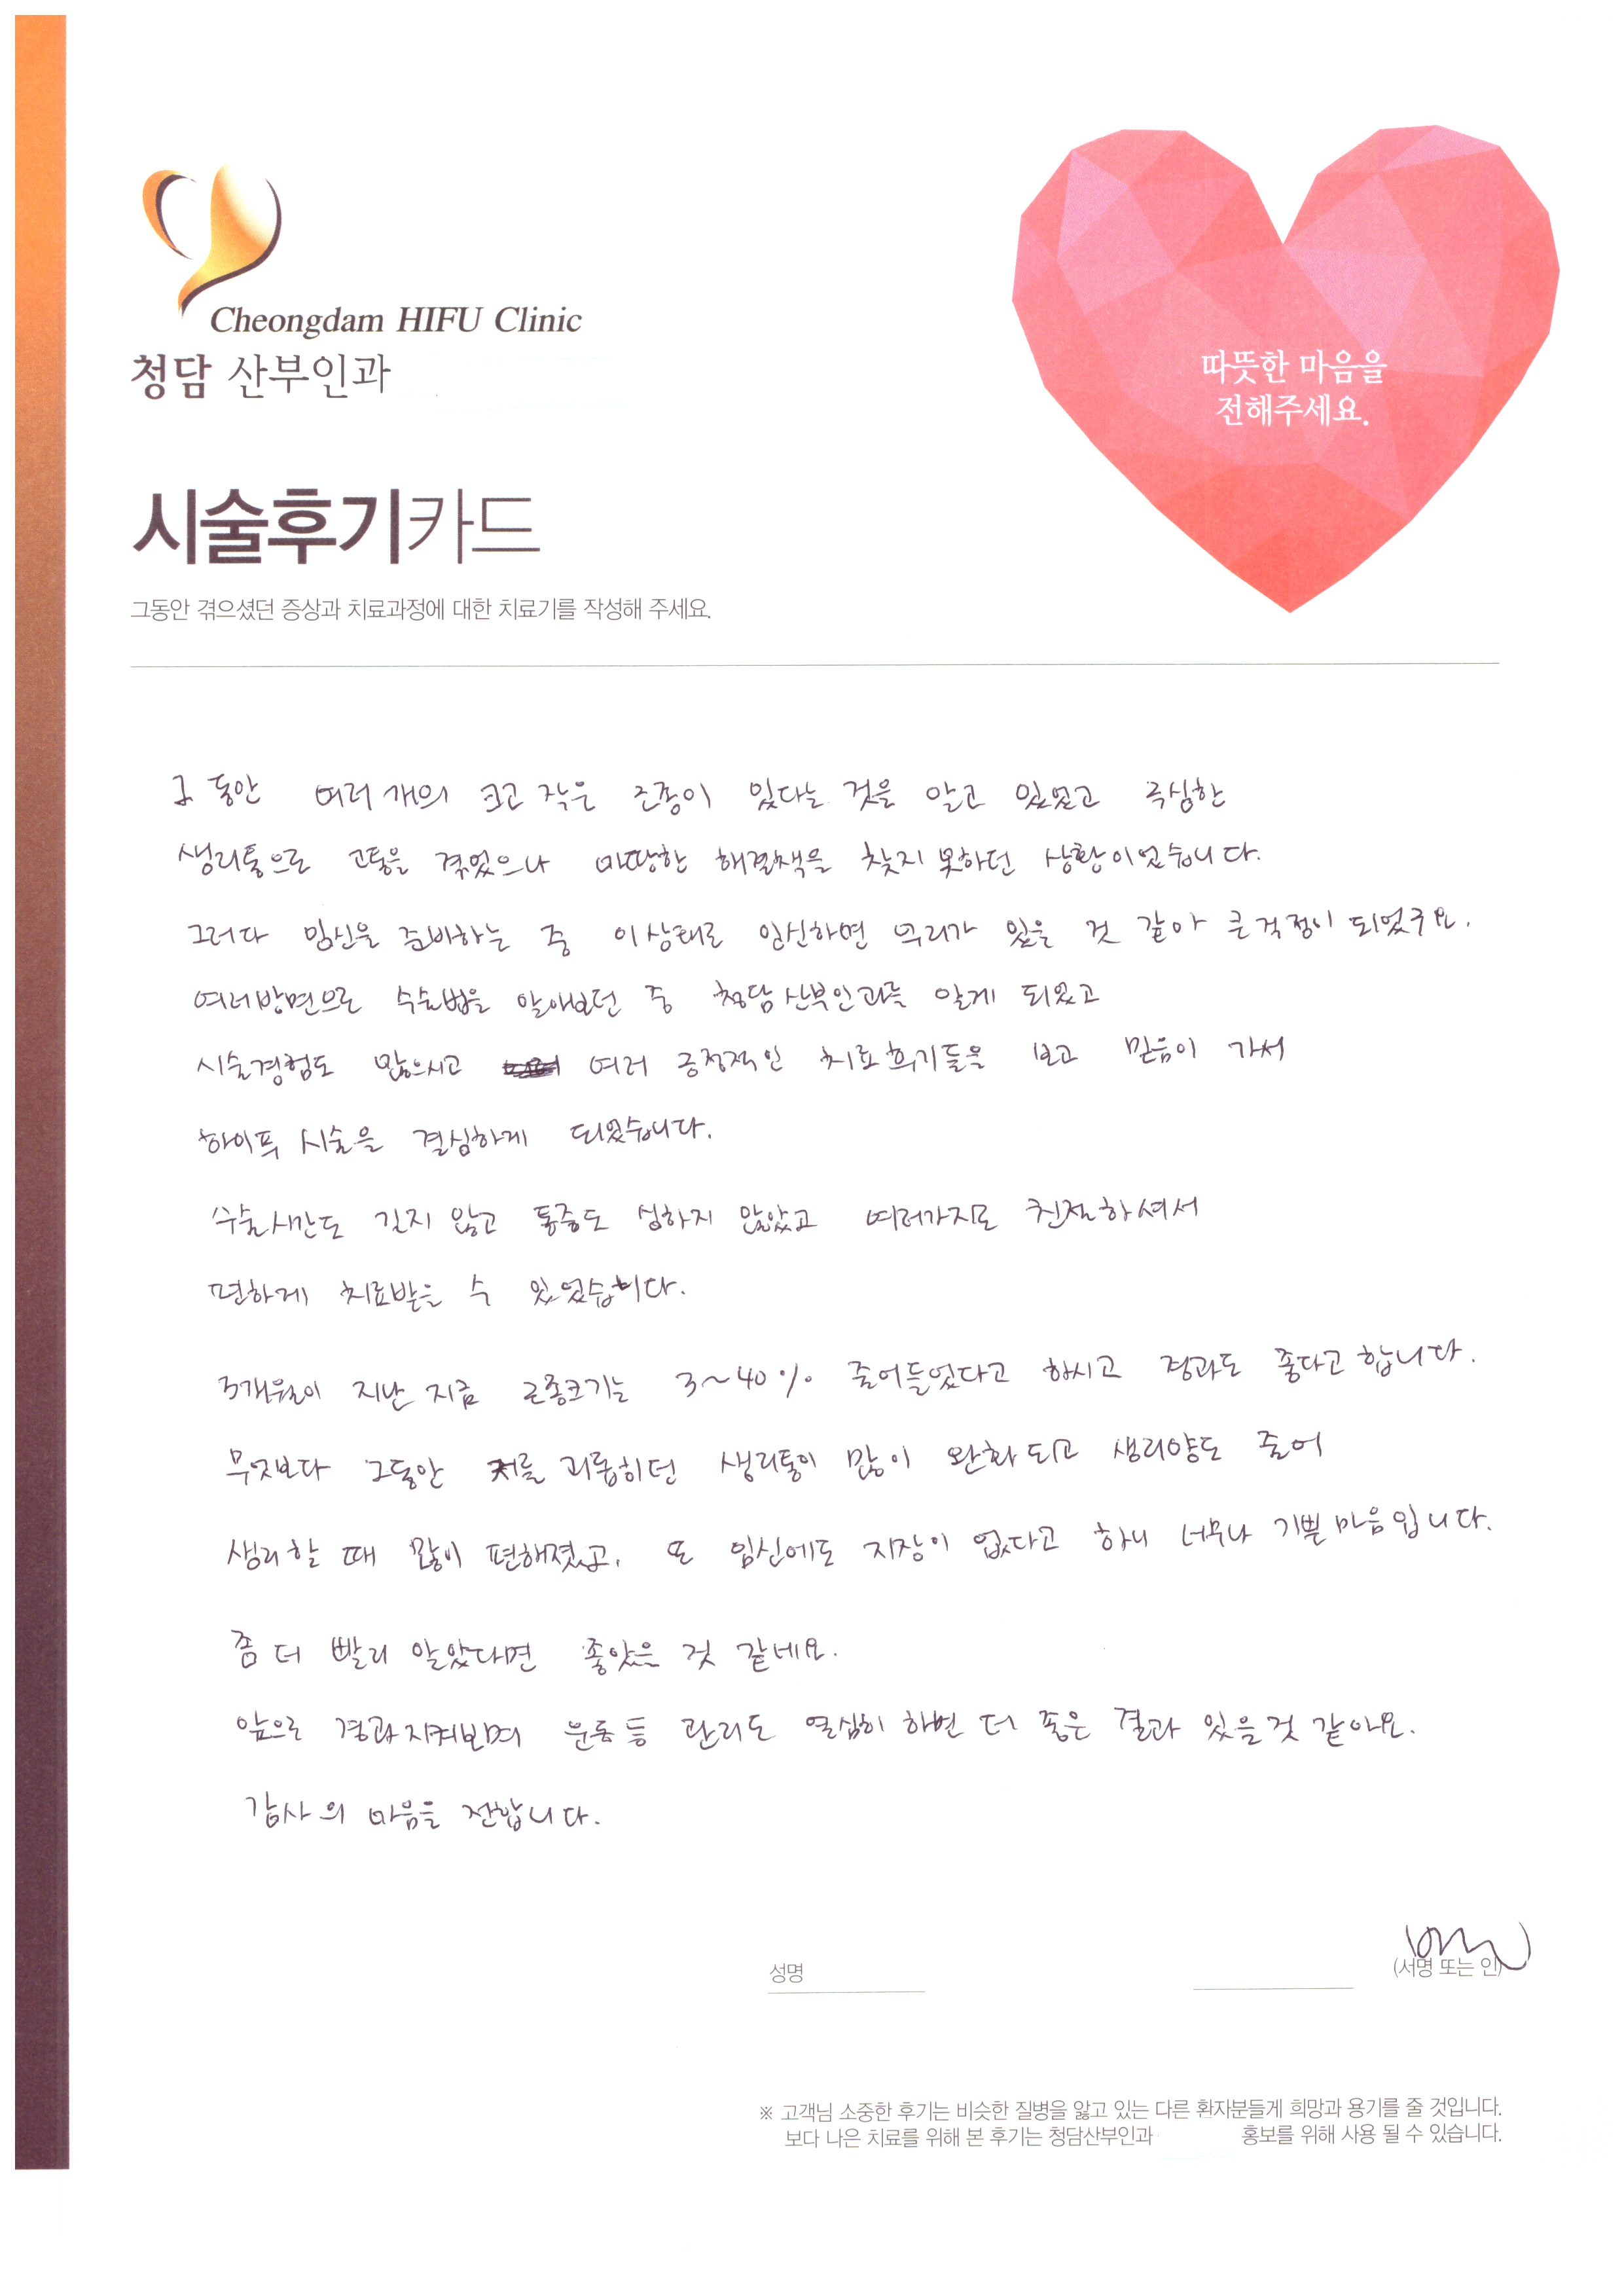 Cheongdam HIFU Clinic
청담 산부인과
따뜻한 마음을
전해주세요.
시술후기카드
그동안 겪으셨던 증상과 치료과정에 대한 치료기를 작성해 주세요.
그 동안 여러 개의 크고 작은 근종이 있다는 것을 알고 있었고 극심한
생리통으로 고통을 겪었으나 마땅한 해결책을 찾지 못하던 상황이었습니다.
그러다 임신을 준비하는 중 이상태로 임신하면 무리가 있을 것 같아 큰 걱정이 되었구요.
여러방면으로 수술법을 알아보던 중 청담산부인과를 알게 되었고
시술경험도 많으시고 여러 긍정적인 치료후기들을 보고 믿음이 가서
하이푸 시술을 결심하게 되었습니다.
수술시간도 길지 않고 통증도 심하지 않았고 여러가지로 친절하셔서
편하게 치료받을 수 있었습니다.
3개월이 지난 지금 근종크기는 3~40% 줄어들었다고 하시고 경과도 좋다고 합니다.
무엇보다 그동안 저를 괴롭히던 생리통이 많이 완화되고 생리양도 줄어
생리할 때 많이 편해졌고, 또 임신에도 지장이 없다고 하니 너무나 기쁠 마음입니다.
좀 더 빨리 알았다면 좋았을 것 같네요.
앞으로 경과지켜보며 운동 등 관리도 열심히 하면 더 좋은 결과 있을것 같아요.
감사의 마음을 전합니다.
성명
(서명 또는 인)
※ 고객님 소중한 후기는 비슷한 질병을 앓고 있는 다른 환자분들게 희망과 용기를 줄 것입니다.
보다 나은 치료를 위해 본 후기는 청담산부인과 홍보를 위해 사용 될 수 있습니다.